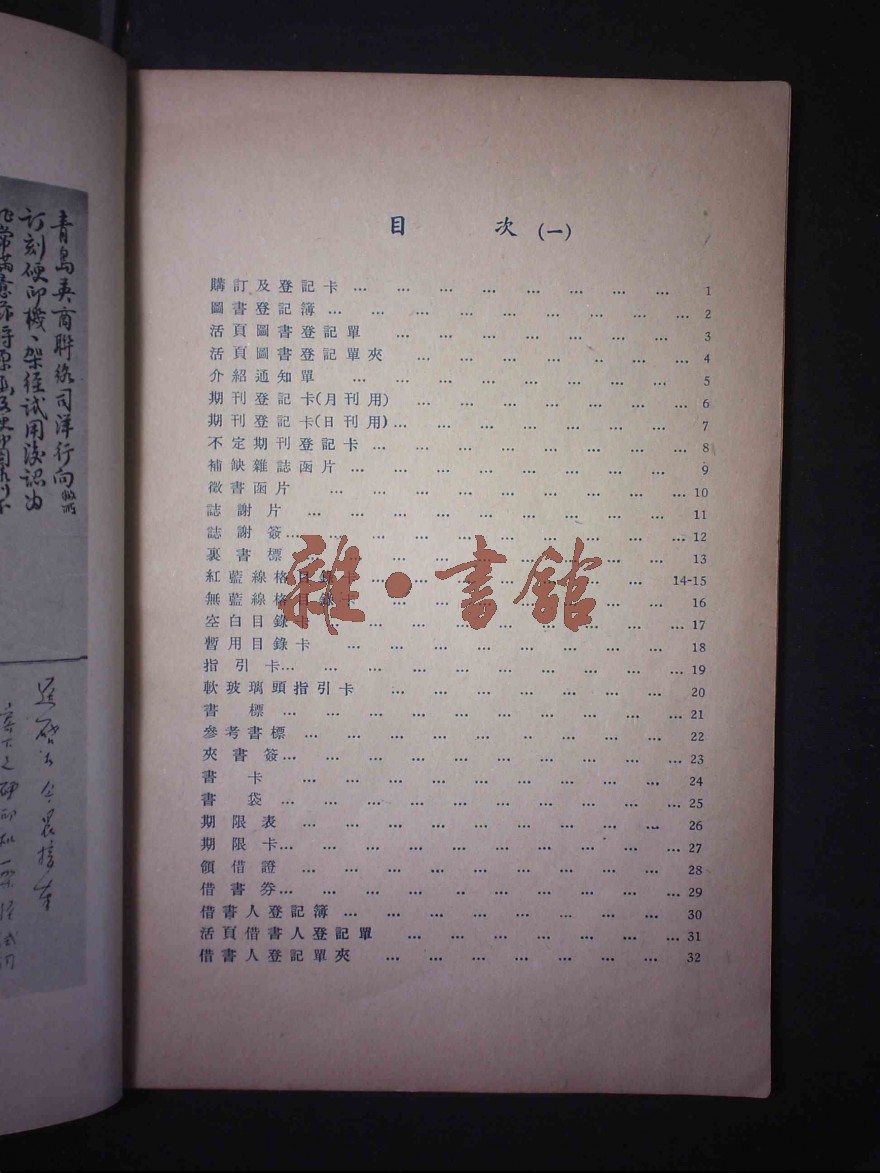 目 次 (一)
購訂及登記卡 … … … … … … … … 1
圖書登記簿 … … … … … … … … … 2
活頁圖書登記單 … … … … … … … 3
活頁圖書登記單夾 … … … … … … … 4
介紹通知單 … … … … … … … … 5
期刊登記卡(月刊用) … … … … … … … 6
期刊登記卡(日刊用) … … … … … … … 7
不定期刊登記卡 … … … … … … … … 8
補缺雜誌函片 … … … … … … … … 9
徵書函片 … … … … … … … … … 10
誌謝片 … … … … … … … … … 11
誌謝簽 … … … … … … … … … … 12
裏書標 … … … … … … … … … 13
紅藍線格目錄卡 … … … … … … … 14-15
無藍線格目錄卡 … … … … … … … 16
空白目錄卡 … … … … … … … … … 17
暫用目錄卡 … … … … … … … … 18
指引卡 … … … … … … … … … … 19
軟玻璃頭指引卡 … … … … … … … 20
書標 … … … … … … … … … … 21
參考書標 … … … … … … … … … 22
夾書簽 … … … … … … … … … … 23
書卡 … … … … … … … … … 24
書袋 … … … … … … … … … … 25
期限表 … … … … … … … … … 26
期限卡 … … … … … … … … … … 27
領借證 … … … … … … … … … 28
借書券 … … … … … … … … … … 29
借書人登記簿 … … … … … … … … 30
活頁借書人登記單 … … … … … … … 31
借書人登記單夾 … … … … … … … 32
雜·書館
青島英商聯絡司洋行向
訂刻硬印機一架徑試用後認為